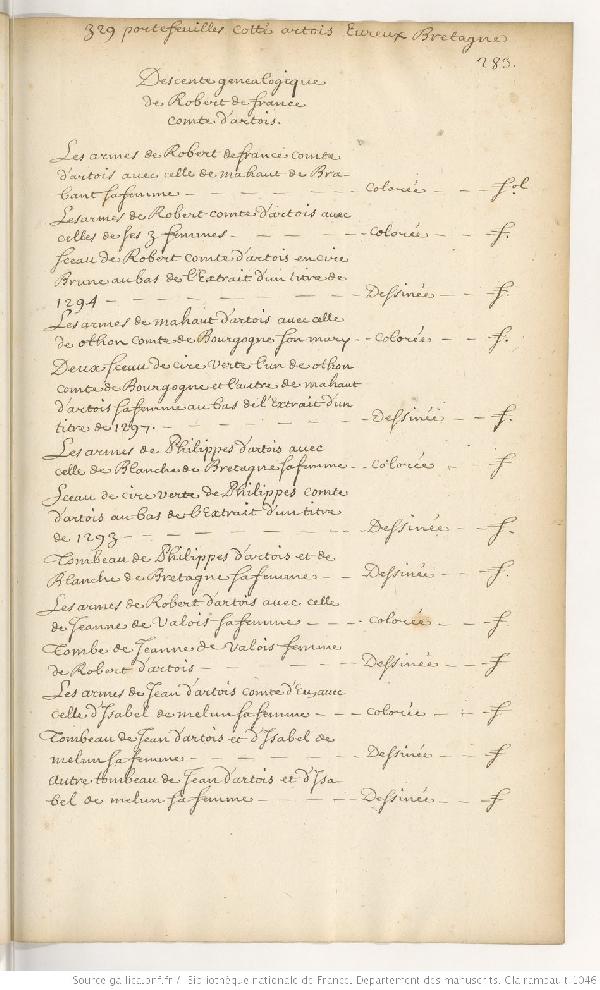 329 portefeuilles cotté artois Eureux Bretagne
283.
Descente genealogique
de Robert de france
comte d'artois.
Les armes de Robert de france comte
d'artois avec celle de mahaut de Bra-
bant sa femme - - - - - - colorée - - - fol
Les armes de Robert comte d'artois avec
celles de ses 3 femmes - - - - - colorée - - - f.
sceau de Robert comte d'artois en cire
Brune au bas de l'Extrait d'un titre de
1294 - - - - - - - - Dessinée - - - f.
Les armes de mahaut d'artois avec celle
de othon comte de Bourgogne son mary - - colorée - - - f.
Deux sceau de cire verte l'un de othon
comte de Bourgogne et l'autre de mahaut
d'artois sa femme au bas de l'Extrait d'un
titre de 1297. - - - - - - - Dessinée - - - f.
Les armes de Philippes d'artois avec
celle de Blanche de Bretagne sa femme - - colorée - - f
sceau de cire verte de Philippes comte
d'artois au bas de l'Extrait d'un titre
de 1293 - - - - - - - - Dessinée - - - f.
Tombeau de Philippes d'artois et de
Blanche de Bretagne sa femme - - - Dessinée - - - f.
Les armes de Robert d'artois avec celle
de Jeanne de Valois sa femme - - - - colorée - - - f
Tombe de Jeanne de Valois femme
de Robert d'artois - - - - - - Dessinée - - - f
Les armes de Jean d'artois comte d'Eu avec
celle d'Isabel de melun sa femme - - - colorée - - - f
Tombeau de Jean d'artois et d'Isabel de
melun sa femme - - - - - - Dessinée - - - f
autre tombeau de Jean d'artois et d'Isa-
bel de melun sa femme - - - - Dessinée - - - f
Source gallica.bnf.fr / Bibliothèque nationale de France. Département des manuscrits. Clairambault 1046